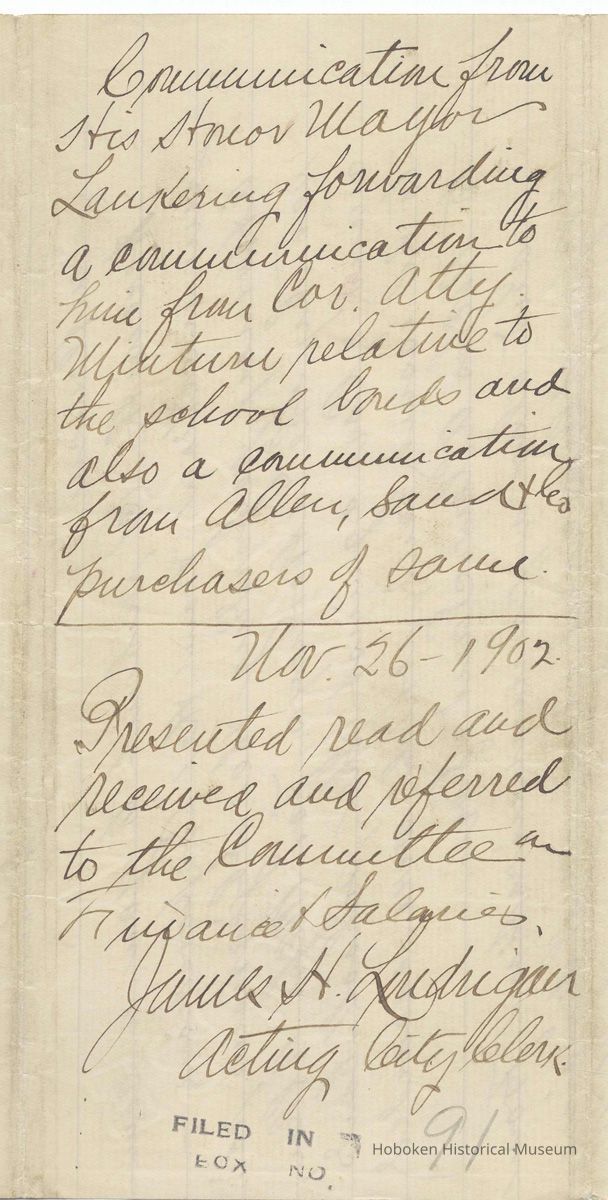 Communication from
His Honor Mayor
Lankering forwarding
a communication to
him from Cor. Atty.
Minturn relative to
the school bonds and
also a communication
from Allen, Sand & Co
purchasers of same.
Nov. 26 - 1902.
Presented read and
received and referred
to the Committee on
Finance & Salaries.
James H. Londrigan
Acting City Clerk.
FILED IN
BOX NO.
91
Hoboken Historical Museum